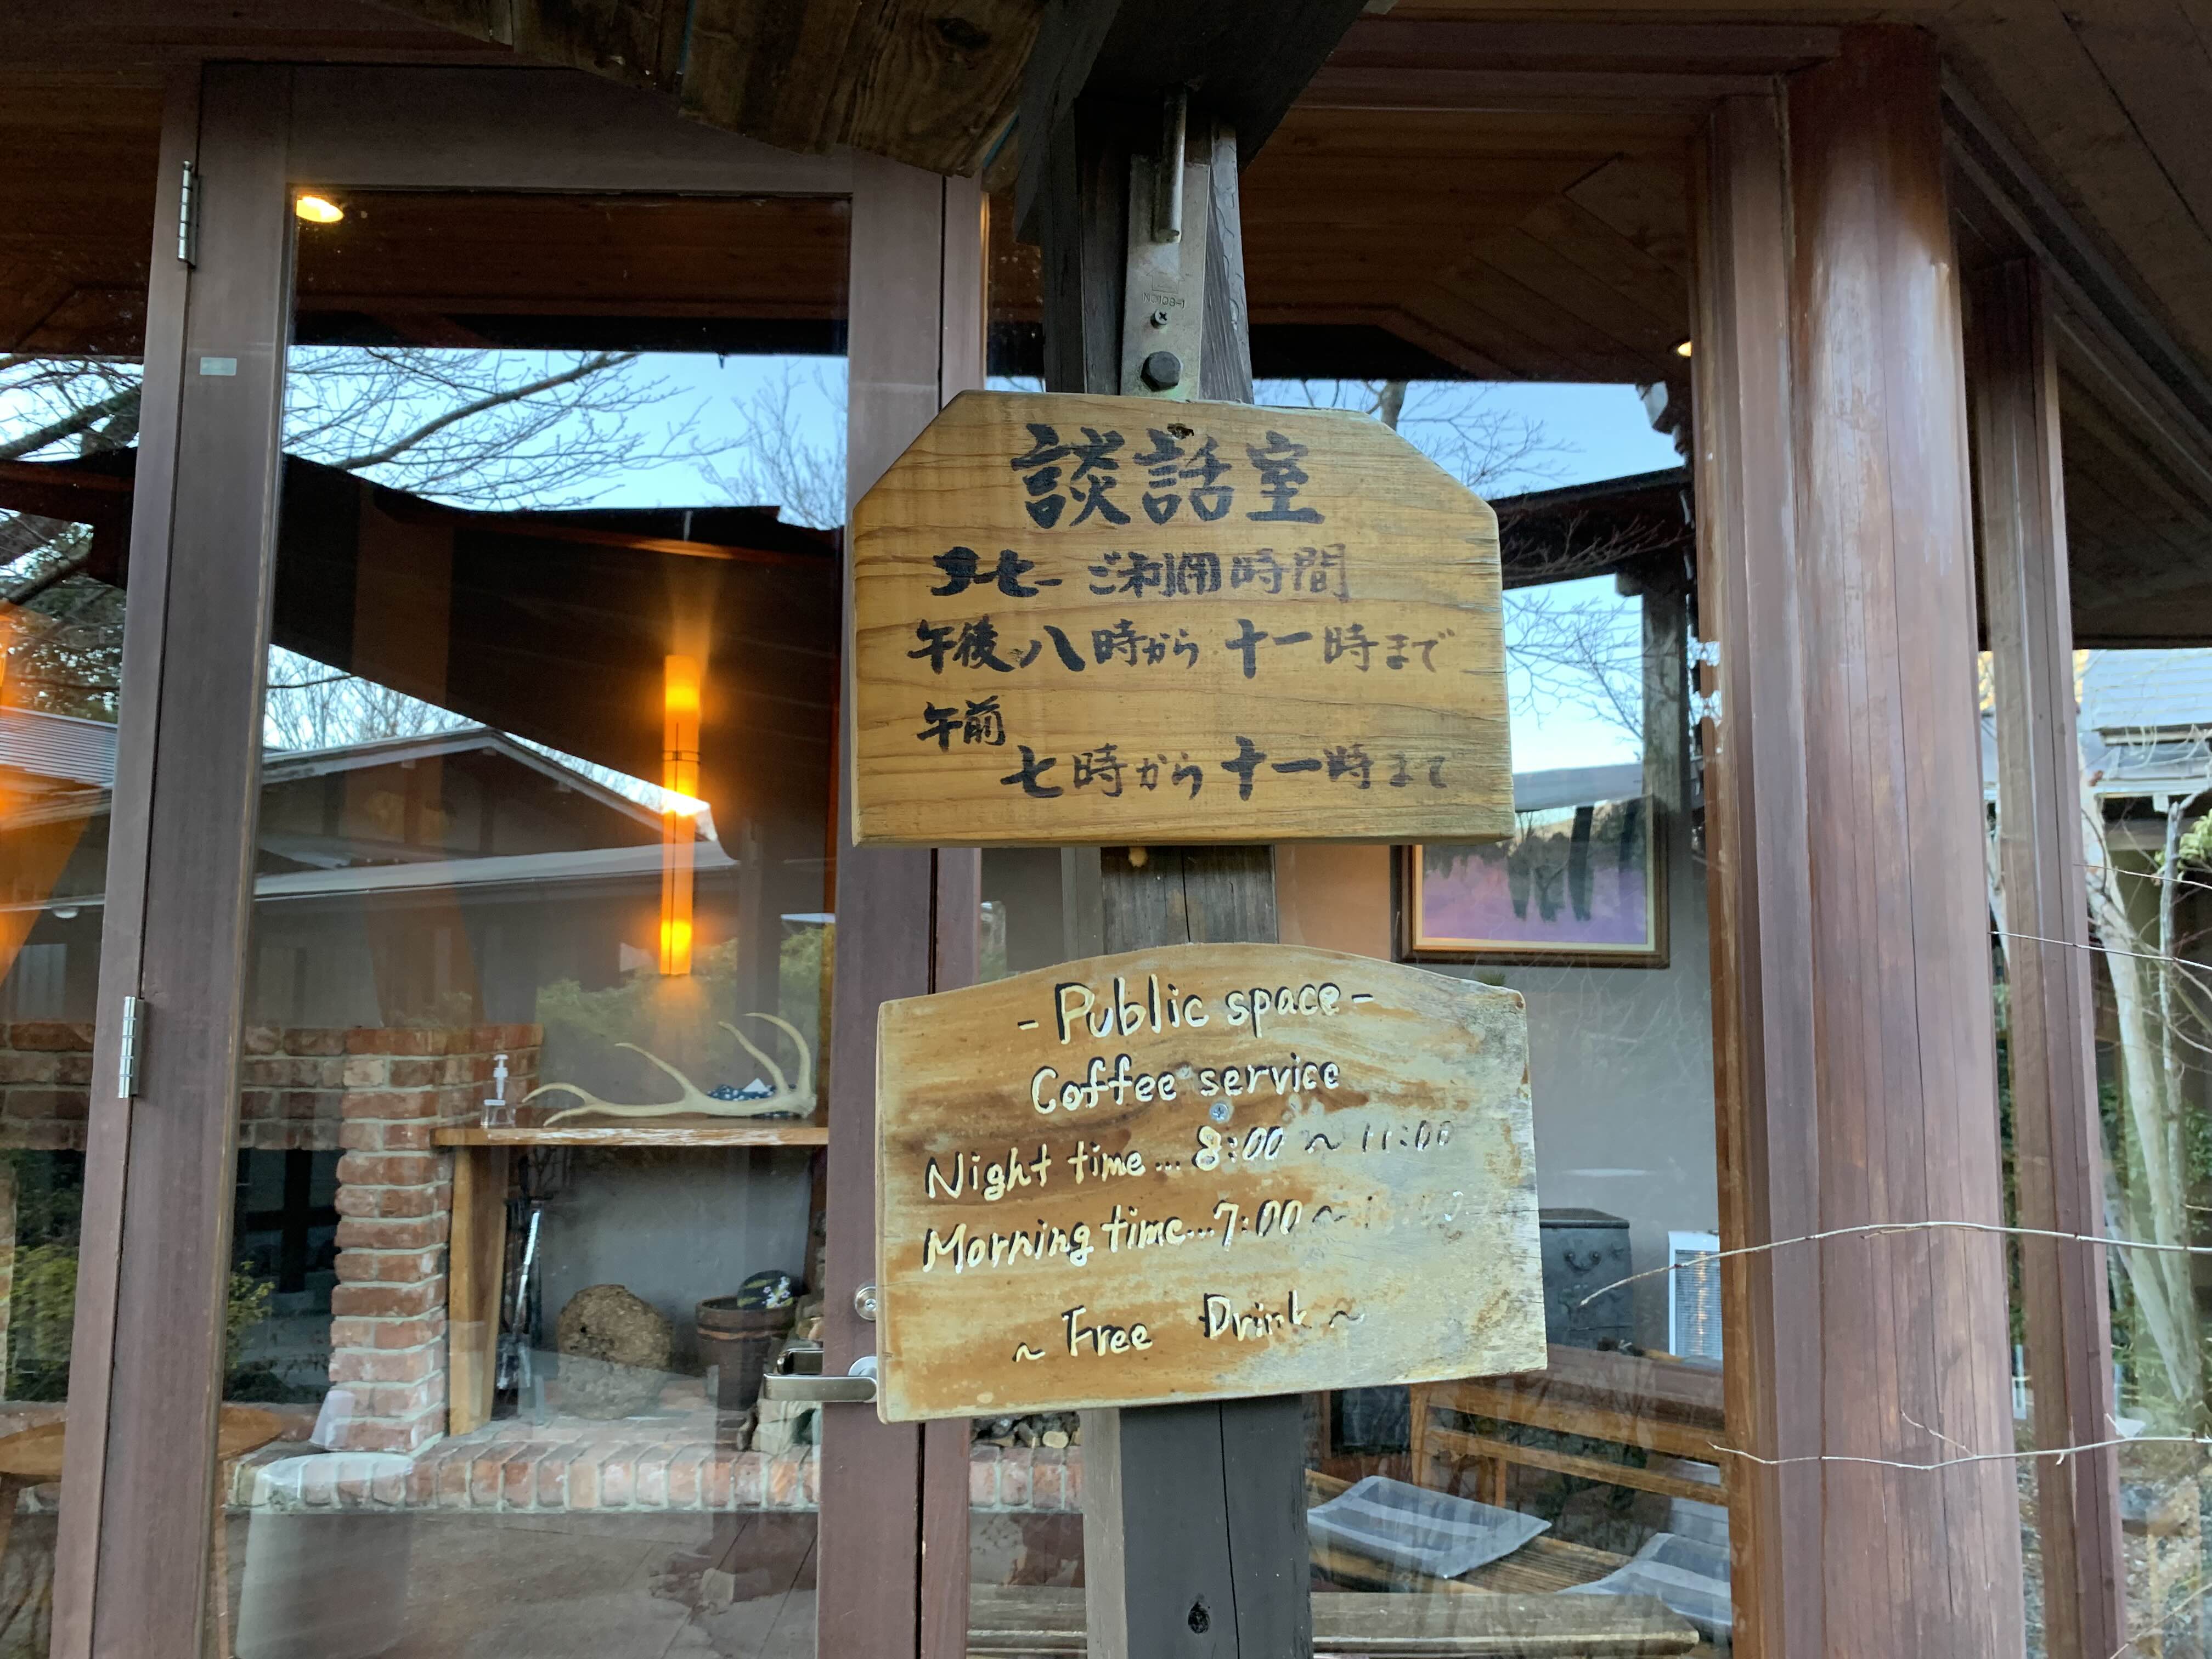 談話室
コーヒー ご利用時間
午後八時から十一時まで
午前
七時から十一時まで
- Public space -
Coffee service
Night time... 8:00 ~ 11:00
Morning time... 7:00 ~
~ Free Drink ~